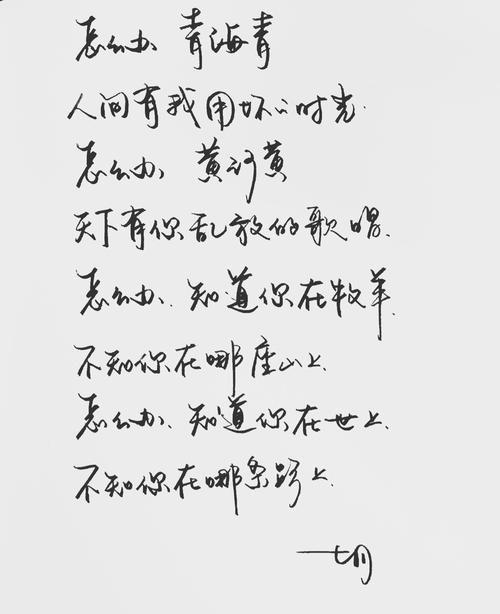 怎么办、青海青
人间有我用坏的时光.
怎么办、黄河黄
天下有你乱放的歌唱.
怎么办.知道你在牧羊.
不知你在哪座山上.
怎么办.知道你在世上.
不知你在哪条路上.
一七月